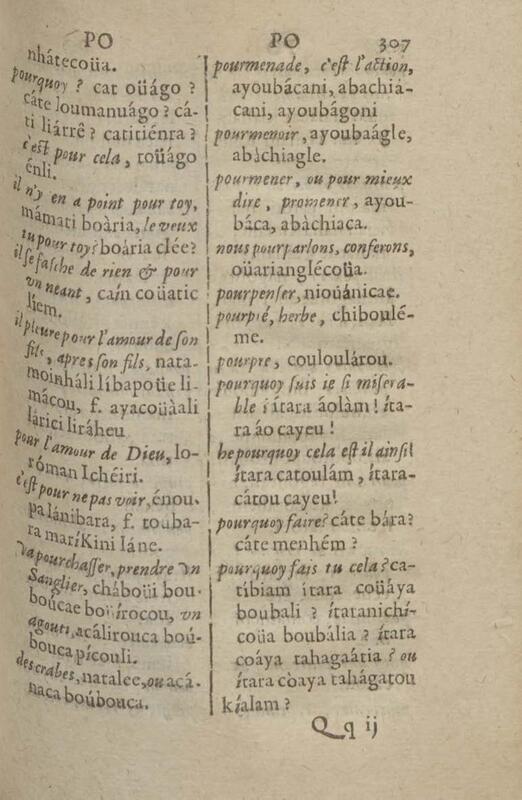 PO
PO
307
nhátecoüa.
pourquoy ? cat oüágo ?
cáte loumanuágo ? cá-
ti liárrê ? catitiénra ?
c'est pour cela, toüágo
énli.
il n'y en a point pour toy,
mámati boària, le veux
tu pour toy? boària clée?
il se fasche de rien & pour
vn neant, caín coüatic
liem.
il pleure pour l'amour de son
fils, apres son fils, nata-
moinháli líbapoüe li-
mácou, f. ayacoüàali
lárici liráheu
pour l'amour de Dieu, lo-
róman Ichéiri.
c'est pour ne pas voir, énou-
palánibara, f. touba-
ra maríKini láne.
Va pourchasser, prendre vn
Sanglier, cháboüi bou-
boúcae boüírocou, vn
agouti, acálirouca boú-
bouca pícouli.
des crabes, natalee, ou acá-
naca boúbouca.
pourmenade, c'est l'action,
ayoubácani, abachiá-
cani, ayoubágoni
pourmenoir, ayoubaágle,
abàchiagle.
pourmener, ou pour mieux
dire, promener, ayou-
báca, abàchiaca.
nous pourparlons, conferons,
oüarianglécoüa.
pourpenser, nioüánicae.
pourpié, herbe, chiboulé-
me.
pourpre, couloulárou.
pourquoy suis ie si misera-
ble ! ítara áolàm ! íta-
ra áo cayeu !
he pourquoy cela est il ainsi!
ítara catoulám, ítara-
cátou cayeu!
pourquoy faire? cáte bára?
cáte menhém ?
pourquoy fais tu cela? ca-
tíbiam itara coüáya
boubali ? ítatanichí-
coüa boubália ? ítara
coáya tahagaátia ? ou
ítara còaya tahágatou
kíalam ?
Qq ij